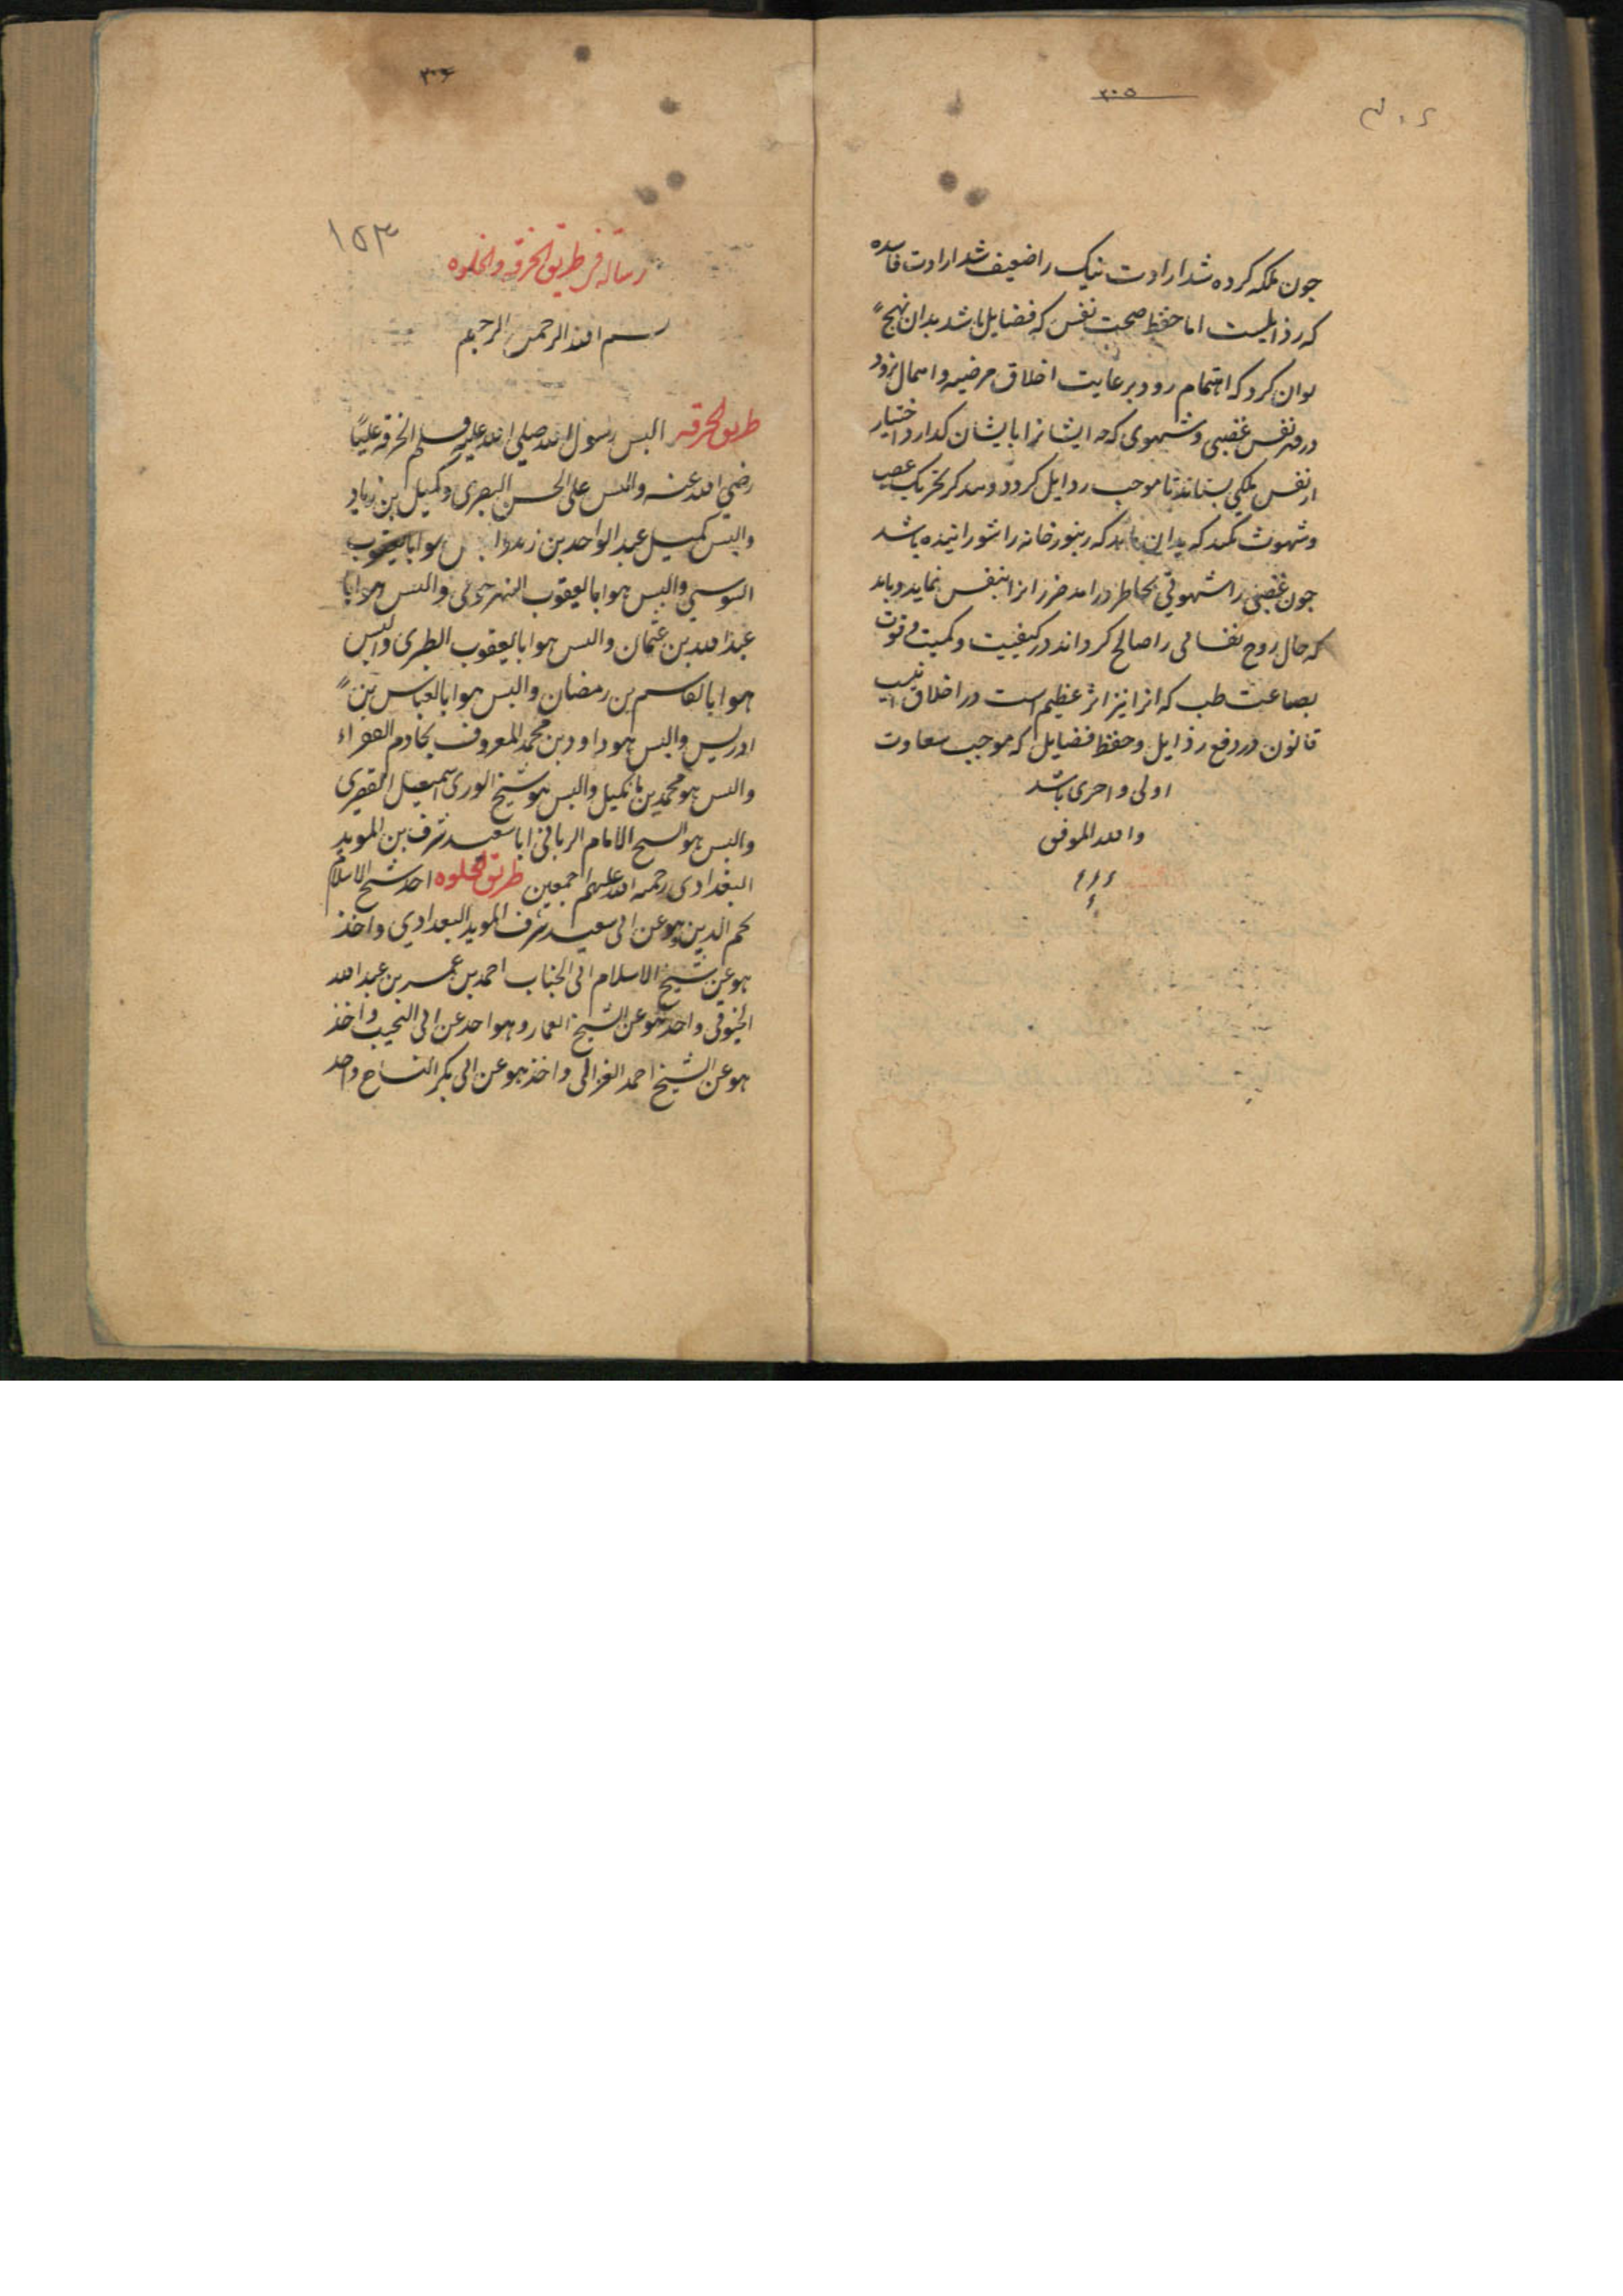 ٣٠٥
چون ملکه کرده شد ارادت نیک را ضعیف شد ارادت فاسده
که رذایلست اما حفظ صحت نفس که فضایل باشد بدان نهج
توان کرد که اهتمام رود بر عایت اخلاق مرضیه و اهمال نرود
در قهر نفس غضبی و شهوی که چه ایشانرا بایشان کدارد اختیار
از نفس ملکی بستانند تا موجب رذایل کردد و تحریک غضب
و شهوت نکند که بدان ماند که زنبورخانه را شورانیده باشد
چون غضبی را شهوتی بخاطر درآمد ضرر آنرا بنفس نماید و باید
که حال روح نفسانی را صالح کرداند در کیفیت و کمیت و قوت
بصناعت طب که آنرا نیز اثر عظیم است در اخلاق
قانون در دفع رذایل و حفظ فضایل که موجب سعادت
اولی و احری باشد
والله الموفق
٣٠٦
١٥٣
رسالة فی طریق الخرقه والخلوه
بسم الله الرحمن الرحیم
طریق الخرقه البس رسول الله صلی الله علیه وسلم الخرقه علیا
رضی الله عنه والبس علی الحسن البصری وکمیل بن زیاد
والبس کمیل عبد الواحد بن زید والبس هو ابا یعقوب
السوسی والبس هو ابا یعقوب النهرجوری والبس هو ابا
عبد الله بن عثمان والبس هو ابا یعقوب الطبری والبس
هو ابا القاسم بن رمضان والبس هو ابا العباس بن
ادریس والبس هو داود بن محمد المعروف بخادم الفقراء
والبس هو محمد بن مانکیل والبس هو شیخ الوری اسمعیل القصری
والبس هو الشیخ الامام الربانی ابا سعید شرف بن الموید
البغدادی رحمه الله علیهم اجمعین طریق الخلوه اخذ شیخ الاسلام
نجم الدین وهو عن ابی سعید شرف الموید البغدادی واخذ
هو عن شیخ الاسلام ابی الجناب احمد بن عمر بن عبد الله
الخیوقی واخذ هو عن الشیخ العمار وهو اخذ عن ابی النجیب واخذ
هو عن الشیخ احمد الغزالی واخذ هو عن ابی بکر النساج واخذ